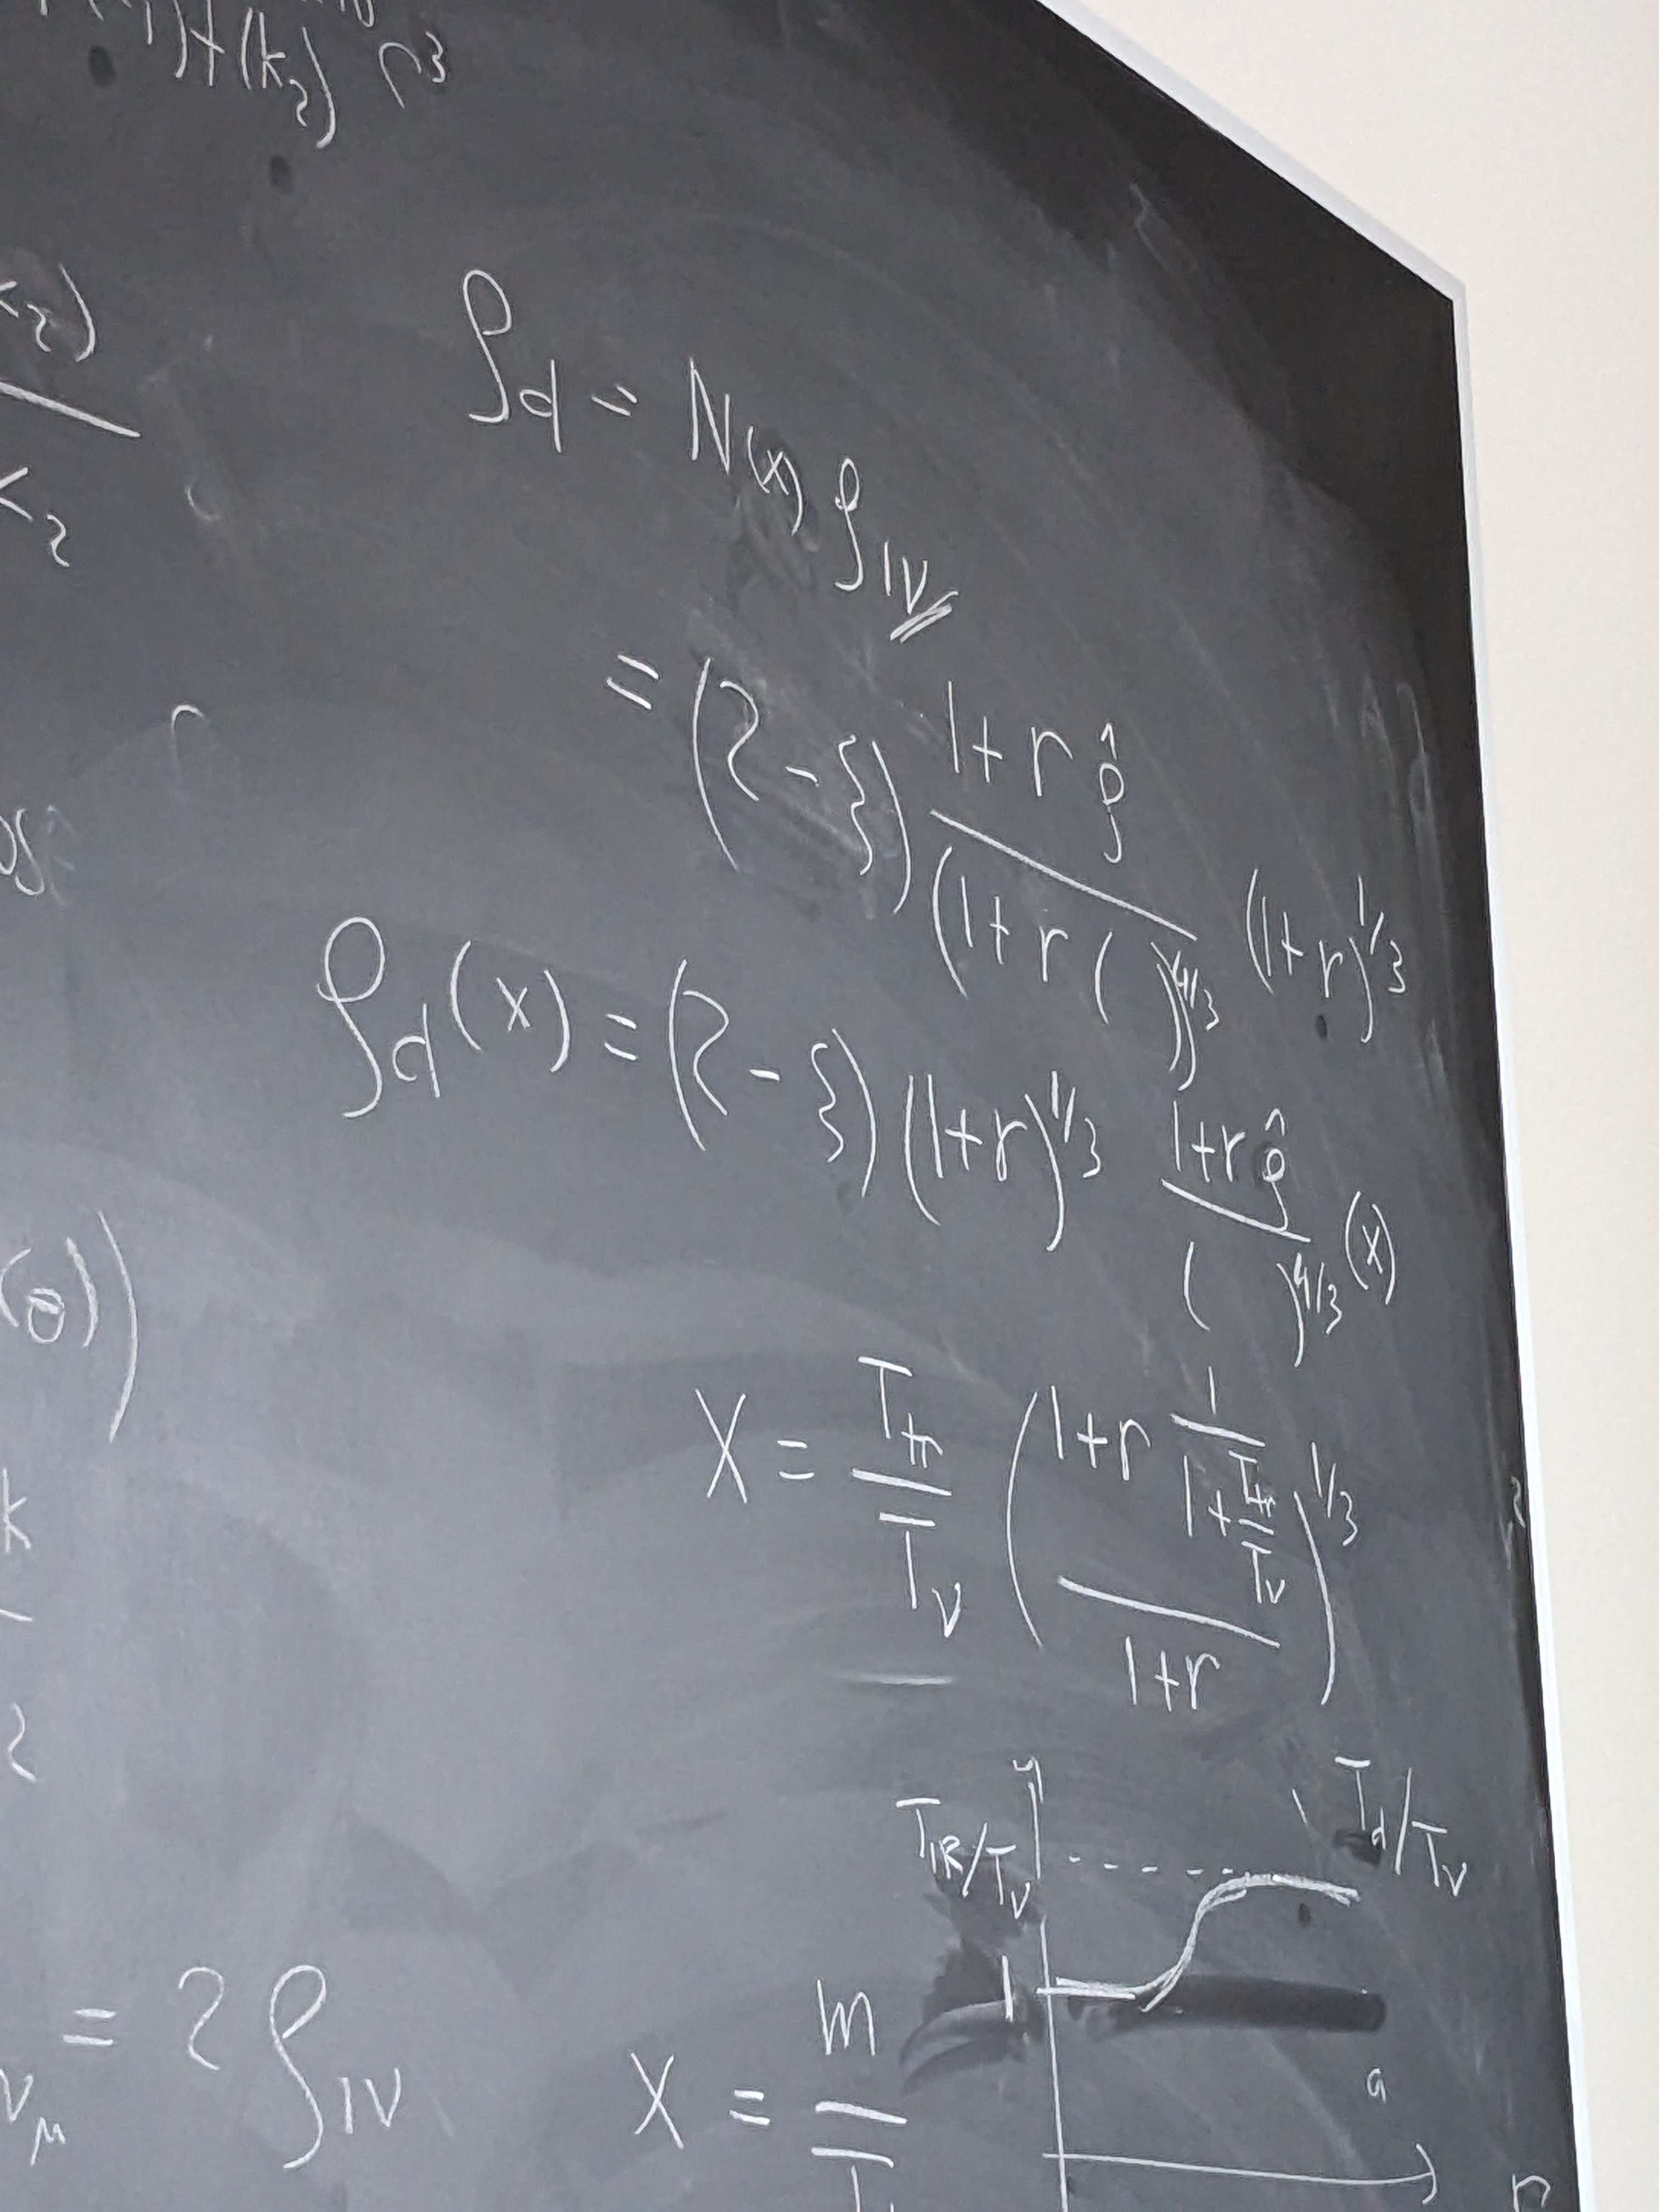 )+(k₂) r³
k₂)
ρ_d = N(x) ρ_{1ν}
k₂
= (2-ξ) (1+r ρ̂)/(1+r ( ))^{4/3} (1+r)^{1/3}
ρ_d(x) = (2-ξ)(1+r)^{1/3} (1+r ρ̂)/( )^{4/3} (x)
(θ))
X = T_tr/T_ν ((1+r 1/(1+T_tr/T_ν))/(1+r))^{1/3}
k
2
T_IR/T_ν
T_d/T_ν
1
ν_μ = 2ρ_{1ν}
X = m/T
a